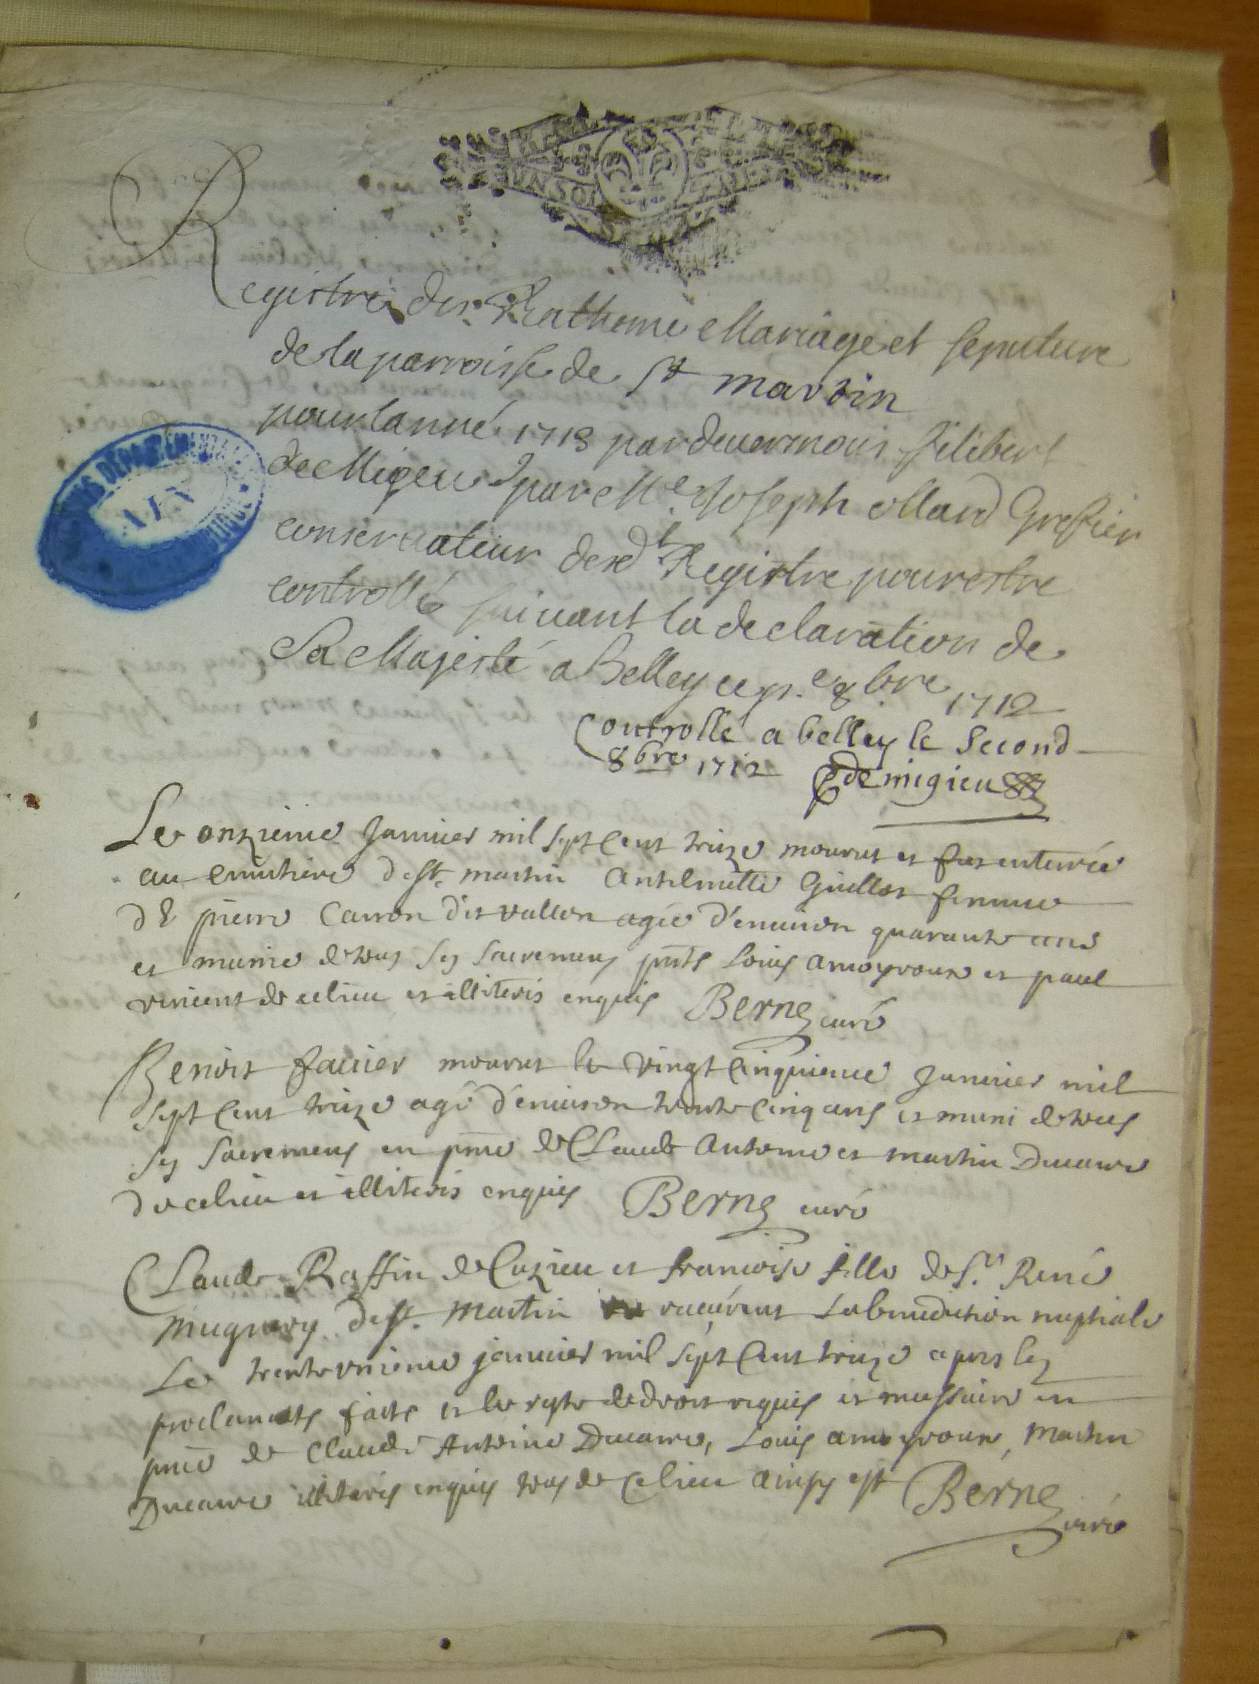 UN SOL
ARCHIVES DÉPARTEMENTALES
AIN
Registre des Batheme Mariage et sepulture
de la parroisse de St martin
pour lanné 1713 par devermoir filibert
de Migieu & par Me Joseph ollard Greffier
conservateur desd Registre pour estre
controllé suivant la declaration de
Sa Majesté a Belley ce pr. 8bre 1712
Controllé a belley le Second
8bre 1712 de migieu
Le onzieme Janvier mil sept cent treize mourut et fut enterrée
au cimitiere de st. martin Antelmette Guillot femme
de pierre Carron dit vallon agée d'environ quarante ans
et munie de tous ses sacremens pnts Louis amoyroux et paul
vincent de ce lieu et illiteris enquis Berne curé
Benoit favier mourut le vingt cinquieme Janvier mil
sept cent treize agé d'environ trente cinq ans et muni de tous
ses sacremens en pnce de Claude Antoine et martin Ducarre
de ce lieu et illiteris enquis Berne curé
Claude Raffin de Cuzieu et francoise fille de sr. René
mugnery de st. Martin receurent la benediction nuptiale
Le trente unieme janvier mil sept cent treize apres les
proclamats faits et le reste de droit requis et necessaire en
pnce de Claude Antoine Ducarre, Louis amoyroux, Martin
Ducarre illiteris enquis tous de ce lieu ainsy est Berne
curé